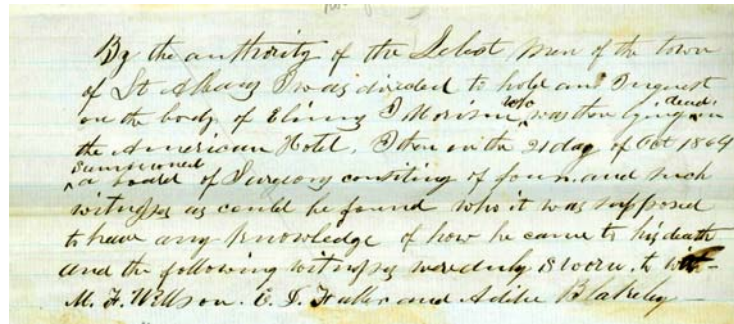 By the authority of the Select men of the town
of St Albans I was directed to hold and Inquest
on the body of Elinus J Morison who was then lying dead in
the American Hotel. I then on the 21 day of Oct 1864
summoned a board of Surgeons consiting of four and such
witnesses as could be found who it was supposed
to have any knowledge of how he came to his death
and the following witnesses were duly sworn, to wit-
M. F. Willson. E. D. Fuller and Adilie Blakeley